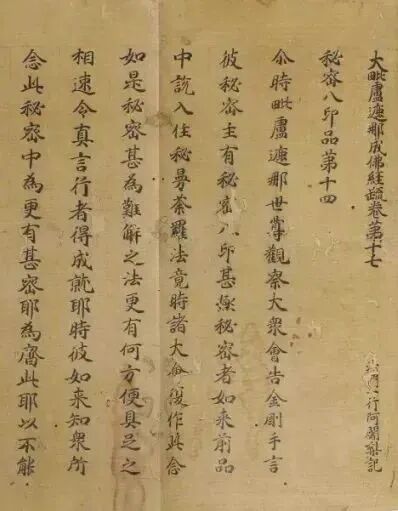 大毗盧遮那成佛經疏卷第十七
沙門一行阿闍梨記
秘密八印品第十四
尒時毗盧遮那世尊觀察大衆會告金剛手言
彼秘密主有秘密八印甚深秘密者如來前品
中說入住秘曼荼羅法竟時諸大會復作此念
如是秘密甚為難解之法更有何方便具足之
相速令真言行者得成就耶時彼如来知衆所
念此秘密中為更有甚密耶為齊此耶以不能